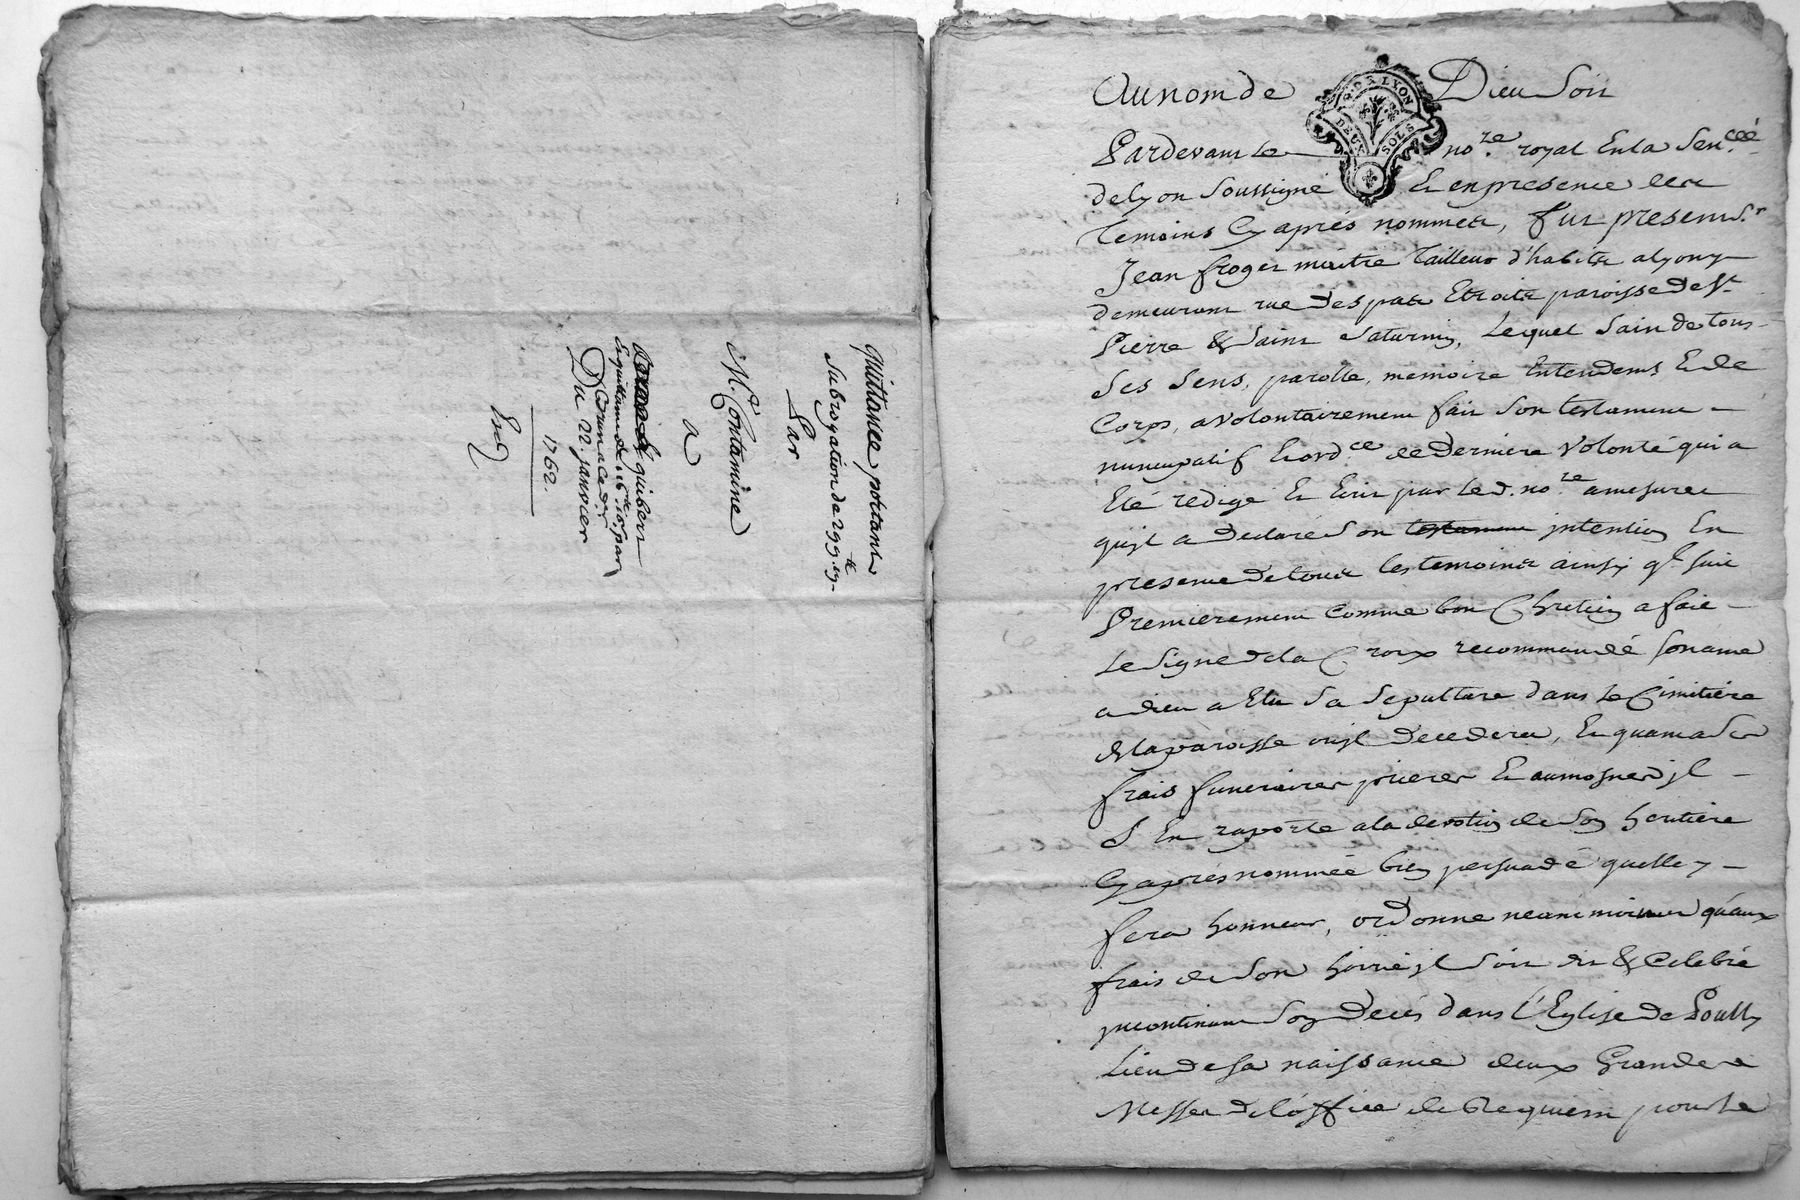 quittance portant
subrogation de 299 lt 19
Par
Me Contamine
a
guibert
Et quittance de 16 lt 10s par
Du 22 janvier
1762.
Exp
Au nom de Dieu Soit
GEN. DE LYON
DEUX SOLS
Pardevant Le nore. royal En la Sen.cée
de Lyon Soussigné Et en presence des
Temoins Cy aprés nommés, fut present Sr
Jean froger maitre Tailleur d'habits a Lyon y
demeurant rue des patr Etroits paroisse de St
Pierre & Saint Saturnin, Lequel Sain de tous
Ses Sens, parolle, memoire Entendemt Et de
Corps, a volontairement fait Son testament
nuncupatif Et ordce de Derniere Volonté qui a
Eté redigé Et Ecrit par Led. nore a mesure
quil a declaré Son testament jntention En
presence de tous les temoins ainsy ql. suit
Premierement comme bon Chretien a fait
Le Signe de la Croix recommandé son ame
a dieu a Elu Sa Sepulture dans Le Cimitiére
de la paroisse ou jl decedera, Et quant a Ses
frais funeraires prieres Et aumosnes jl
S'En raporte a la devotion de Son heritiére
Cy aprés nommée bien persuadé quelle y
fera honneur, ordonne neant moins qu'aux
frais de Son hoirie jl Soit dit & Celebré
jncontinant Son Decés dans l'Eglise de Poully
Lieu de sa naissance deux Grandes
Messes de l'office de Requiem pour Le